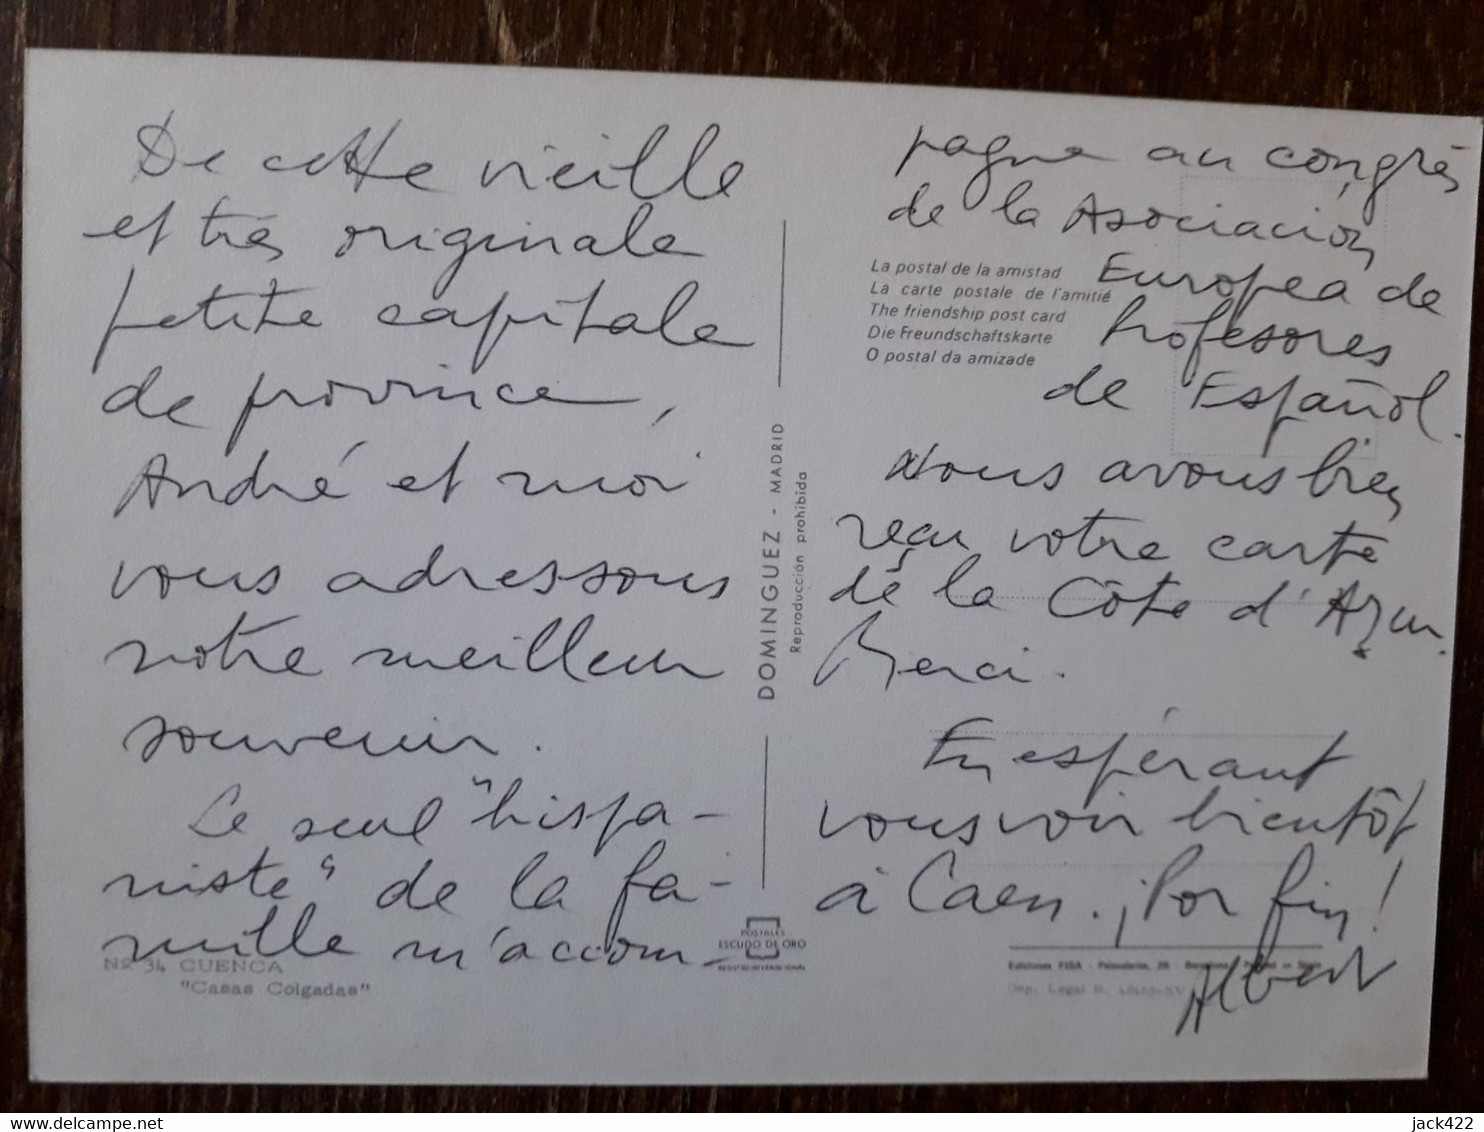 De cette vieille
et très originale
petite capitale
de province,
André et moi
vous adressons
notre meilleur
souvenir.
Le seul "hispa-
niste" de la fa-
mille m'accom-
Nº 34 CUENCA
"Casas Colgadas"
DOMINGUEZ - MADRID
Reproducción prohibida
POSTALES
ESCUDO DE ORO
pagne au congrès
de la Asociación
Europea de
Profesores
de Español.
La postal de la amistad
La carte postale de l'amitié
The friendship post card
Die Freundschaftskarte
O postal da amizade
Nous avons bien
reçu votre carte
de la Côte d'Azur.
Merci.
En espérant
vous voir bientôt
à Caen. ¡Por fin!
Albert
Ediciones FISA
Dep. Legal B.
jack422